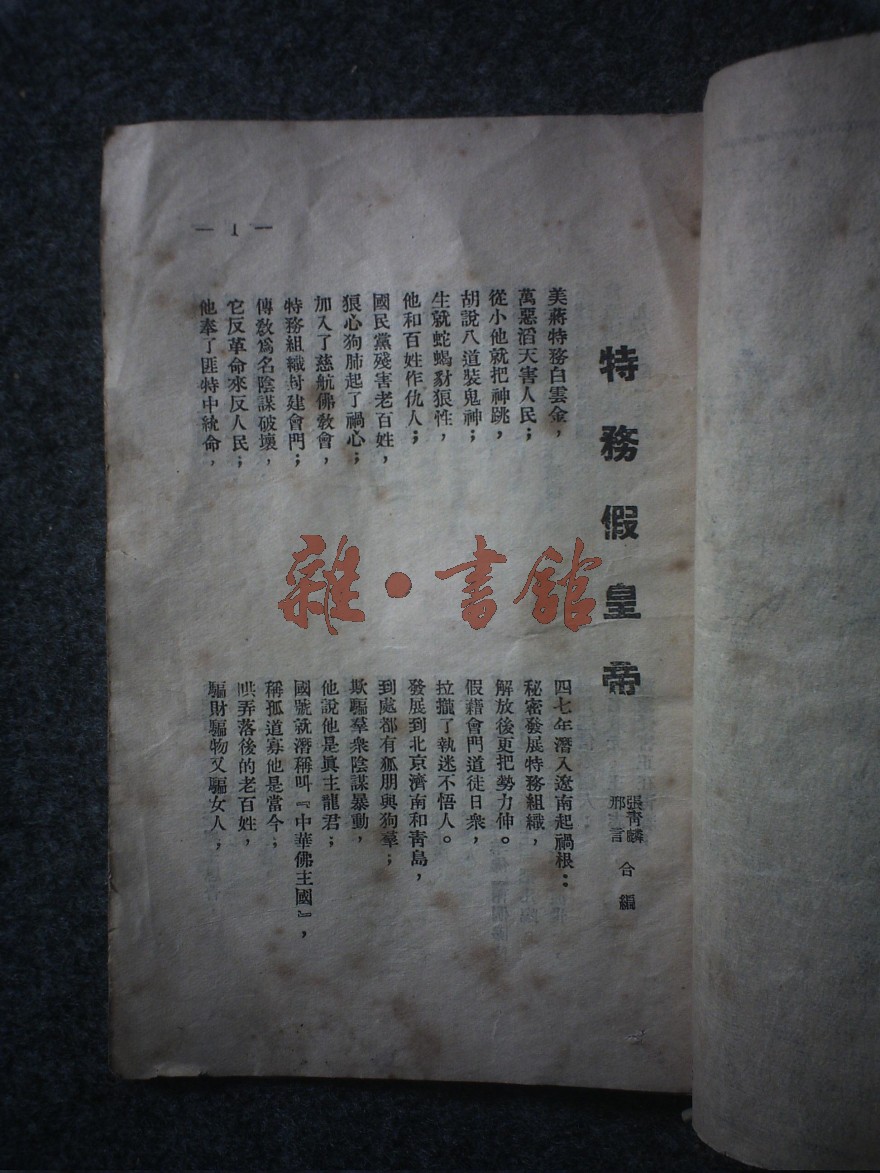 特務假皇帝
張青麟
邢言
合編
美蔣特務白雲金，
萬惡滔天害人民；
從小他就把神跳，
胡說八道裝鬼神；
生就蛇蝎豺狼性，
他和百姓作仇人；
國民黨殘害老百姓，
狠心狗肺起了禍心；
加入了慈航佛教會，
特務組織封建會門；
傳教爲名陰謀破壞，
它反革命來反人民；
他奉了匪特中統命，
四七年潛入遼南起禍根：
秘密發展特務組織，
解放後更把勢力伸。
假藉會門道徒日衆，
拉攏了執迷不悟人。
發展到北京濟南和青島，
到處都有狐朋與狗羣；
欺騙羣衆陰謀暴動，
他說他是眞主龍君；
國號就潛稱叫『中華佛主國』，
稱孤道寡他是當今；
哄弄落後的老百姓，
騙財騙物又騙女人，
— 1 —
雜·書館